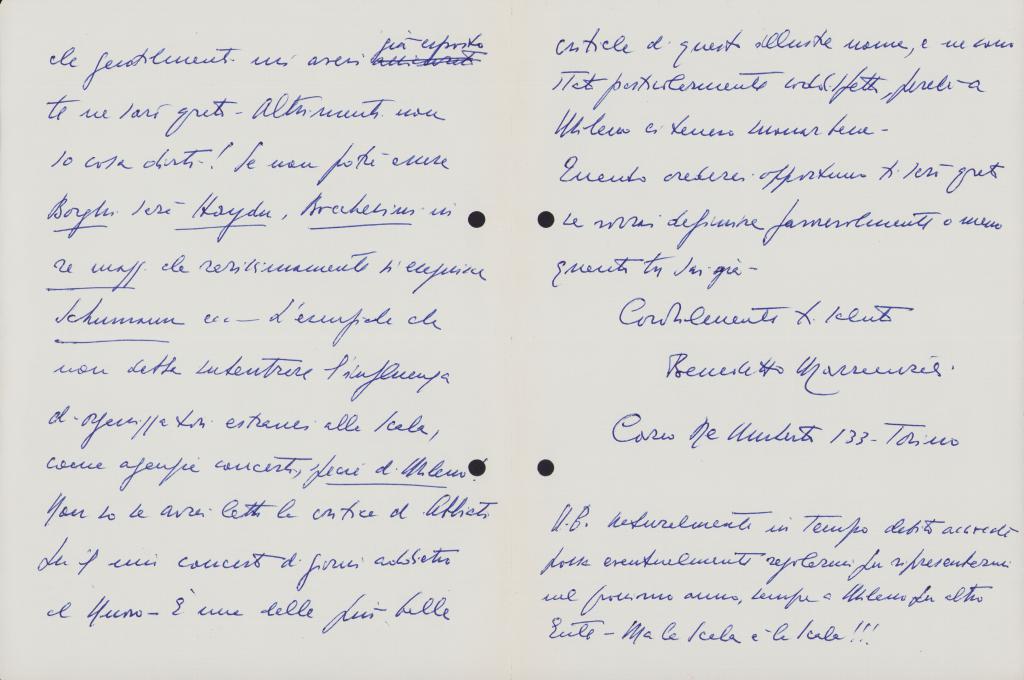 che gentilmente mi avevi già esposto
te ne sarò grato - Altrimenti non
so cosa dirti! Se non potrà essere
Borghi sarà Haydn, Boccherini in
re magg. che rarissimamente si eseguisce
Schumann ecc — L'essenziale che
non debba subentrare l'influenza
di organizzatori estranei alla Scala,
come agenzie concerti, specie di Milano!
Non so se avrai letto la critica di Abbiati
per il mio concerto di giorni addietro
al Nuovo - È una delle più belle
critiche di questo illustre nome, e ne sono
stato particolarmente soddisfatto, perché a
Milano ci tenevo suonar bene -
Quanto crederai opportuno ti sarò grato
se vorrai definire favorevolmente o meno
quanto tu sai già -
Cordialmente ti saluto
Benedetto Mazzacurati
Corso Re Umberto 133 - Torino
N.B. Naturalmente in tempo debito acciocché
possa eventualmente regolarmi per ripresentarmi
nel prossimo anno, sempre a Milano per altro
Ente - Ma la Scala è la Scala!!!